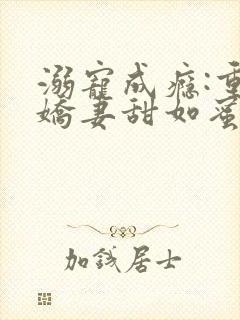 溺寵成癮:重
嬌妻甜如蜜
加錢居士